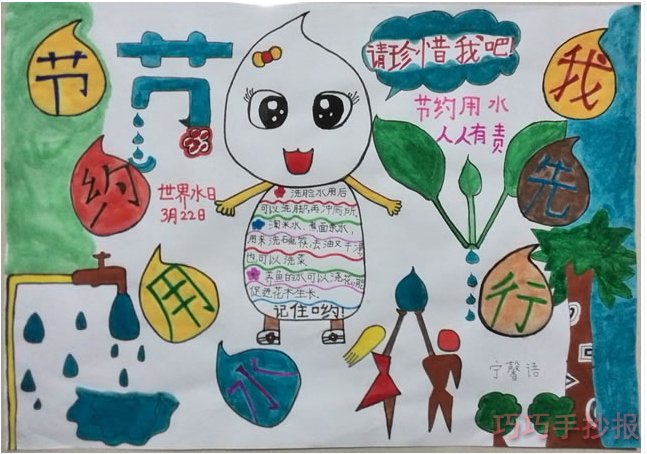 节约用水
我先行
节
请珍惜我吧!
节约用水
人人有责
世界水日
3月22日
洗脸水用后
可以洗脚,再冲厕所
淘米水、煮面条水,
用来洗碗筷,去油又干净
也可以洗菜
养鱼的水可以浇花,能
促进花木生长.
记住哟!
宁馨语
巧巧手抄报